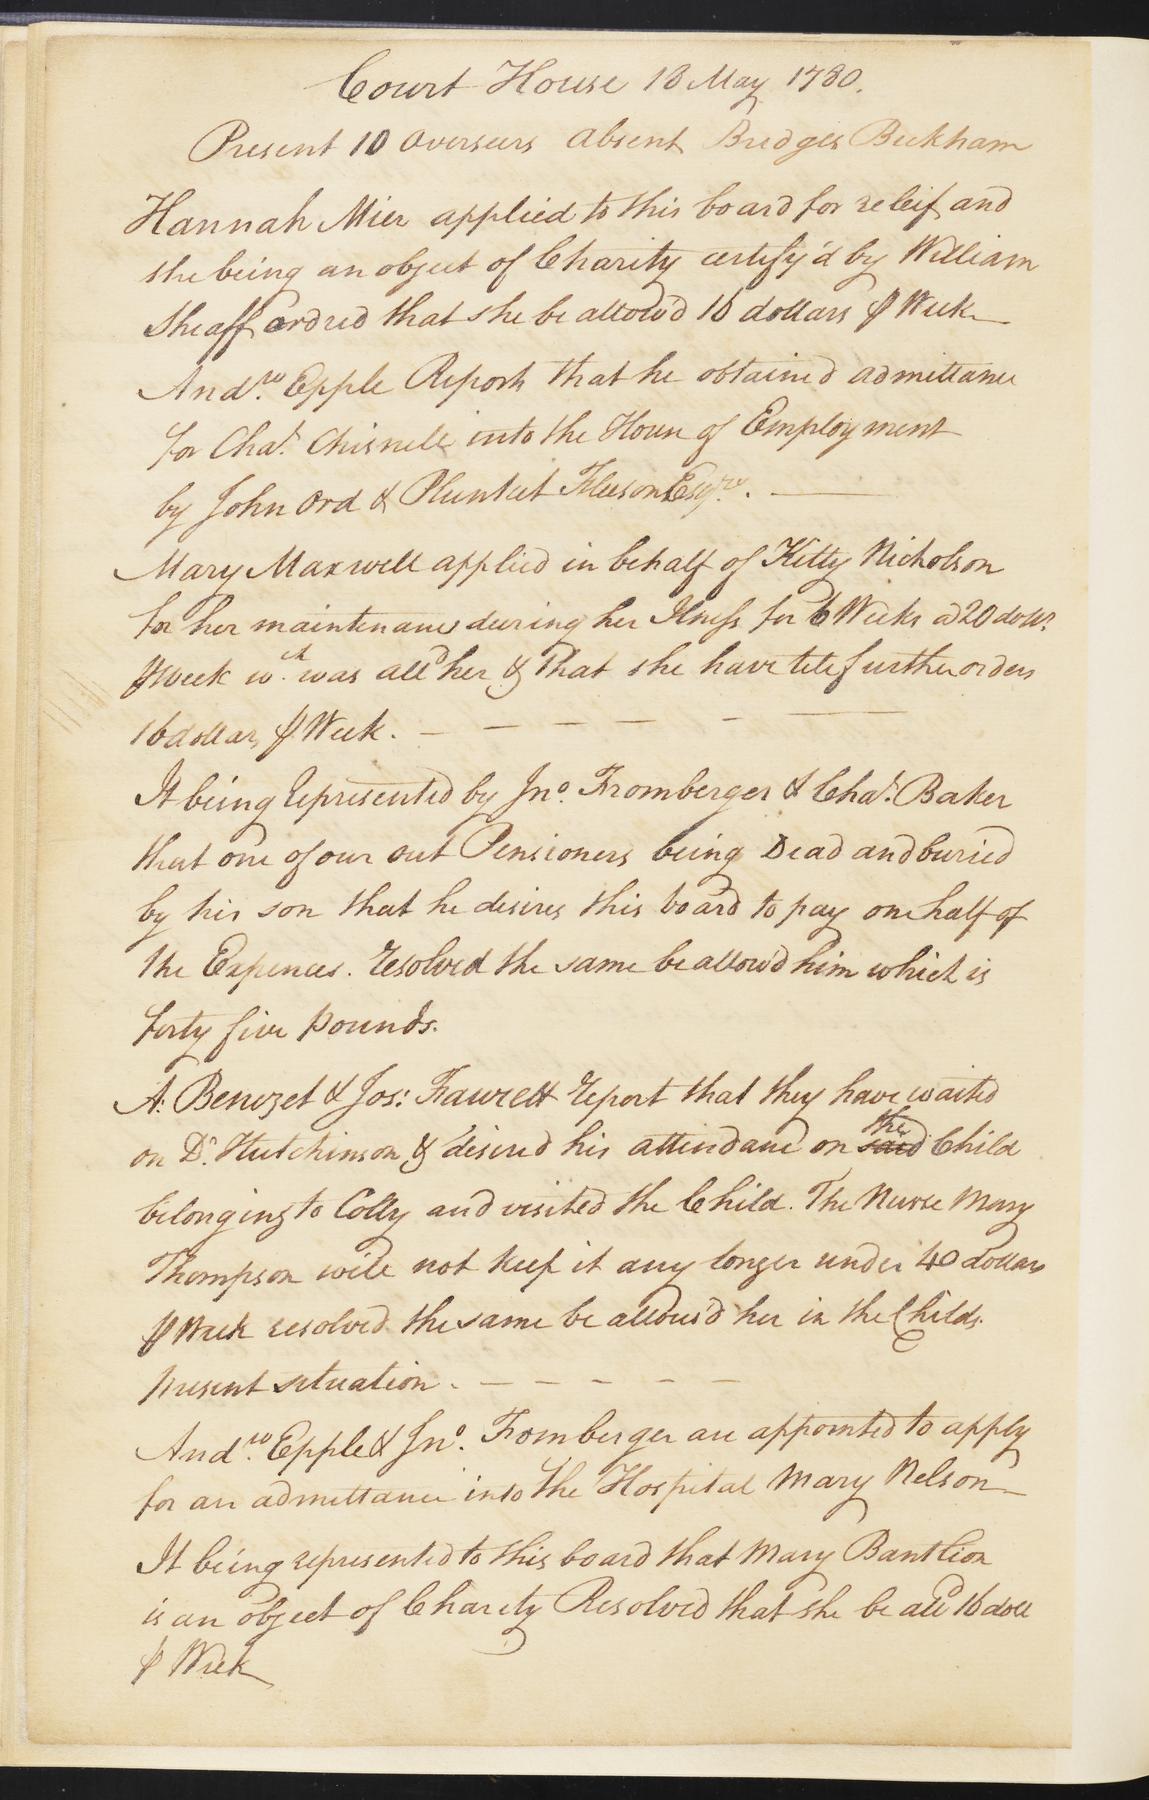 Court House 18 May 1780.
Present 10 Overseers Absent Bridges Bickham
Hannah Mier applied to this board for releif and
she being an object of Charity certify'd by William
Sheaff ordred that she be allow'd 16 dollars ⅌ Week
Andrw. Epple Reports that he obtained admittance
for Chas. Chisnell into the House of Employment
by John Ord & Plunket Fleeson Esqrs.
Mary Maxwell applied in behalf of Kitty Nicholson
for her maintenance during her Ilness for 6 Weeks a 20 dolls.
⅌ Week wch. was alld her & that she have till further orders
16 dollars ⅌ Week.
It being Represented by Jno. Fromberger & Chas. Baker
that one of our out Pensioners being Dead and buried
by his son that he desires this board to pay one half of
the Expences. Resolved the same be allow'd him which is
forty five pounds.
A: Benezet & Jos: Fawcett report that they have waited
on Dr. Hutchinson & desired his attendance on said the Child
belonging to Colly and visited the Child. The Nurse Mary
Thompson will not keep it any longer under 40 dollars
⅌ Week resolved the same be allow'd her in the Childs
present situation.
Andrw. Epple & Jno. Fromberger are appointed to apply
for an admittance into the Hospital Mary Nelson
It being represented to this board that Mary Bantlion
is an object of Charity Resolved that she be alld 16 doll
⅌ Week